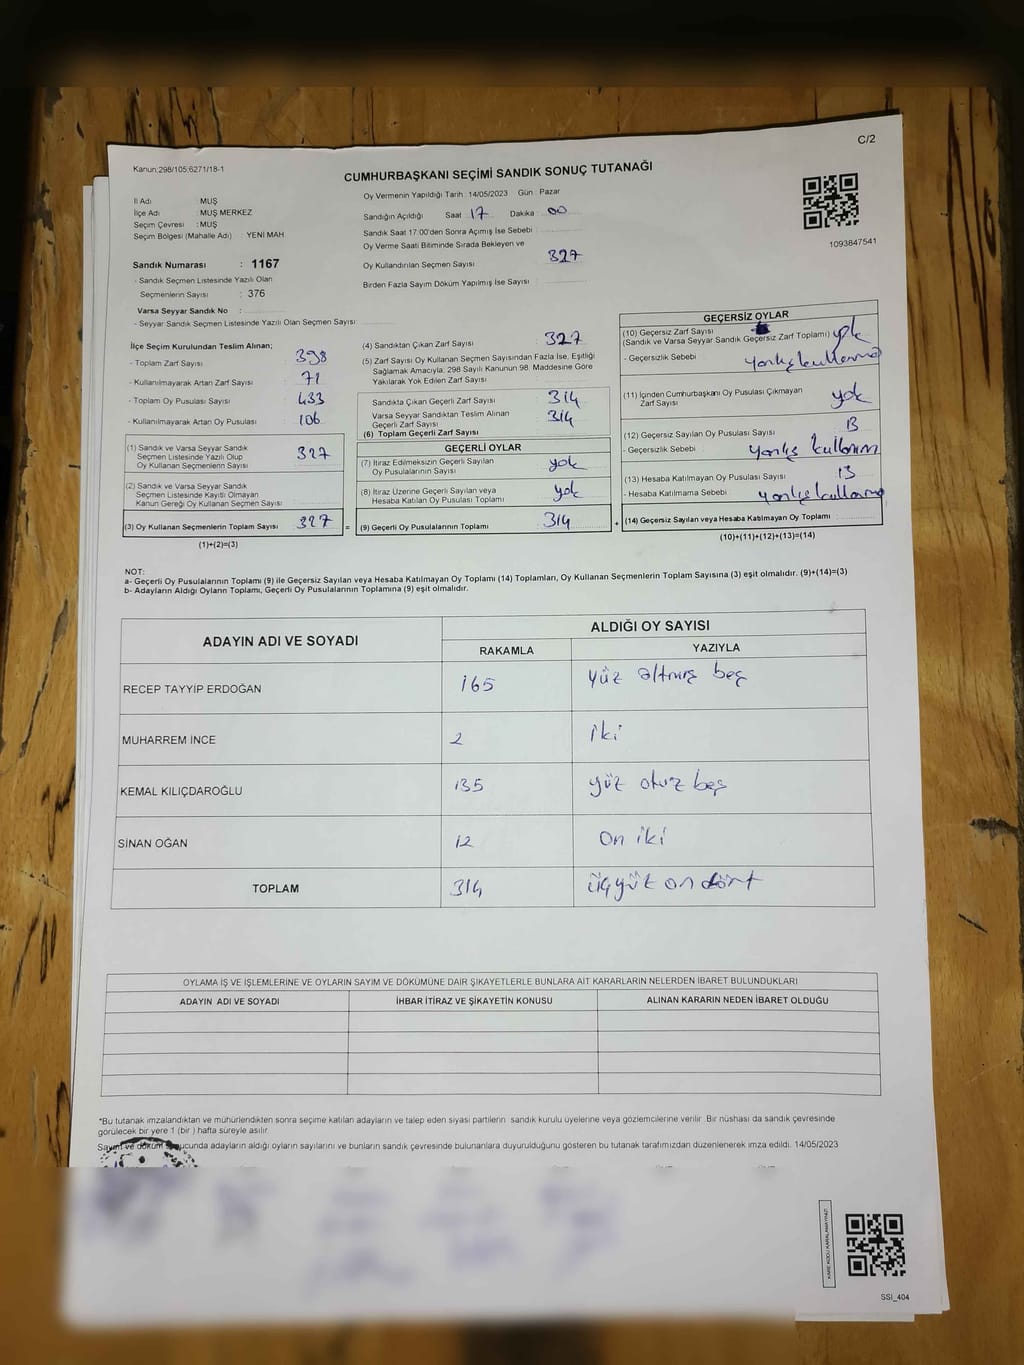 C/2
Kanun:298/105;6271/18-1
CUMHURBAŞKANI SEÇİMİ SANDIK SONUÇ TUTANAĞI
İl Adı MUŞ
İlçe Adı MUŞ MERKEZ
Seçim Çevresi : MUŞ
Seçim Bölgesi (Mahalle Adı) : YENİ MAH
Sandık Numarası : 1167
- Sandık Seçmen Listesinde Yazılı Olan
Seçmenlerin Sayısı : 376
Varsa Seyyar Sandık No :
- Seyyar Sandık Seçmen Listesinde Yazılı Olan Seçmen Sayısı
Oy Vermenin Yapıldığı Tarih :14/05/2023 Gün : Pazar
Sandığın Açıldığı Saat 17 Dakika 00
Sandık Saat 17:00'den Sonra Açımış İse Sebebi
Oy Verme Saati Bitiminde Sırada Bekleyen ve
Oy Kullandırılan Seçmen Sayısı 327
Birden Fazla Sayım Döküm Yapılmış İse Sayısı
1093847541
İlçe Seçim Kurulundan Teslim Alınan;
- Toplam Zarf Sayısı 398
- Kullanılmayarak Artan Zarf Sayısı 71
- Toplam Oy Pusulası Sayısı 433
- Kullanılmayarak Artan Oy Pusulası 106
(1) Sandık ve Varsa Seyyar Sandık
Seçmen Listesinde Yazılı Olup
Oy Kullanan Seçmenlerin Sayısı 327
(2) Sandık ve Varsa Seyyar Sandık
Seçmen Listesinde Kayıtlı Olmayan
Kanun Gereği Oy Kullanan Seçmen Sayısı
(3) Oy Kullanan Seçmenlerin Toplam Sayısı 327 =
(1)+(2)=(3)
(4) Sandıktan Çıkan Zarf Sayısı 327
(5) Zarf Sayısı Oy Kullanan Seçmen Sayısından Fazla İse, Eşitliği
Sağlamak Amacıyla; 298 Sayılı Kanunun 98. Maddesine Göre
Yakılarak Yok Edilen Zarf Sayısı
Sandıkta Çıkan Geçerli Zarf Sayısı 314
Varsa Seyyar Sandıktan Teslim Alınan
Geçerli Zarf Sayısı 314
(6) Toplam Geçerli Zarf Sayısı
GEÇERLİ OYLAR
(7) İtiraz Edilmeksizin Geçerli Sayılan
Oy Pusulalarının Sayısı yok
(8) İtiraz Üzerine Geçerli Sayılan veya
Hesaba Katılan Oy Pusulası Toplamı yok
(9) Geçerli Oy Pusulalarının Toplamı 314 +
GEÇERSİZ OYLAR
(10) Geçersiz Zarf Sayısı
(Sandık ve Varsa Seyyar Sandık Geçersiz Zarf Toplamı) yok
- Geçersizlik Sebebi yanlış kullanma
(11) İçinden Cumhurbaşkanı Oy Pusulası Çıkmayan
Zarf Sayısı yok
(12) Geçersiz Sayılan Oy Pusulası Sayısı 13
- Geçersizlik Sebebi yanlış kullanım
(13) Hesaba Katılmayan Oy Pusulası Sayısı 13
- Hesaba Katılmama Sebebi yanlış kullanma
(14) Geçersiz Sayılan veya Hesaba Katılmayan Oy Toplamı
(10)+(11)+(12)+(13)=(14)
NOT:
a- Geçerli Oy Pusulalarının Toplamı (9) ile Geçersiz Sayılan veya Hesaba Katılmayan Oy Toplamı (14) Toplamları, Oy Kullanan Seçmenlerin Toplam Sayısına (3) eşit olmalıdır. (9)+(14)=(3)
b- Adayların Aldığı Oyların Toplamı, Geçerli Oy Pusulalarının Toplamına (9) eşit olmalıdır.
ADAYIN ADI VE SOYADI ALDIĞI OY SAYISI
RAKAMLA YAZIYLA
RECEP TAYYİP ERDOĞAN 165 yüz altmış beş
MUHARREM İNCE 2 iki
KEMAL KILIÇDAROĞLU 135 yüz otuz beş
SİNAN OĞAN 12 on iki
TOPLAM 314 üçyüz on dört
OYLAMA İŞ VE İŞLEMLERİNE VE OYLARIN SAYIM VE DÖKÜMÜNE DAİR ŞİKAYETLERLE BUNLARA AİT KARARLARIN NELERDEN İBARET BULUNDUKLARI
ADAYIN ADI VE SOYADI İHBAR İTİRAZ VE ŞİKAYETİN KONUSU ALINAN KARARIN NEDEN İBARET OLDUĞU
*Bu tutanak imzalandıktan ve mühürlendikten sonra seçime katılan adayların ve talep eden siyasi partilerin sandık kurulu üyelerine veya gözlemcilerine verilir. Bir nüshası da sandık çevresinde
görülecek bir yere 1 (bir ) hafta süreyle asılır.
Sayım ve döküm sonucunda adayların aldığı oyların sayılarını ve bunların sandık çevresinde bulunanlara duyurulduğunu gösteren bu tutanak tarafımızdan düzenlenerek imza edildi. 14/05/2023
KARE KODU KARALAMAYINIZ!
SSI_404